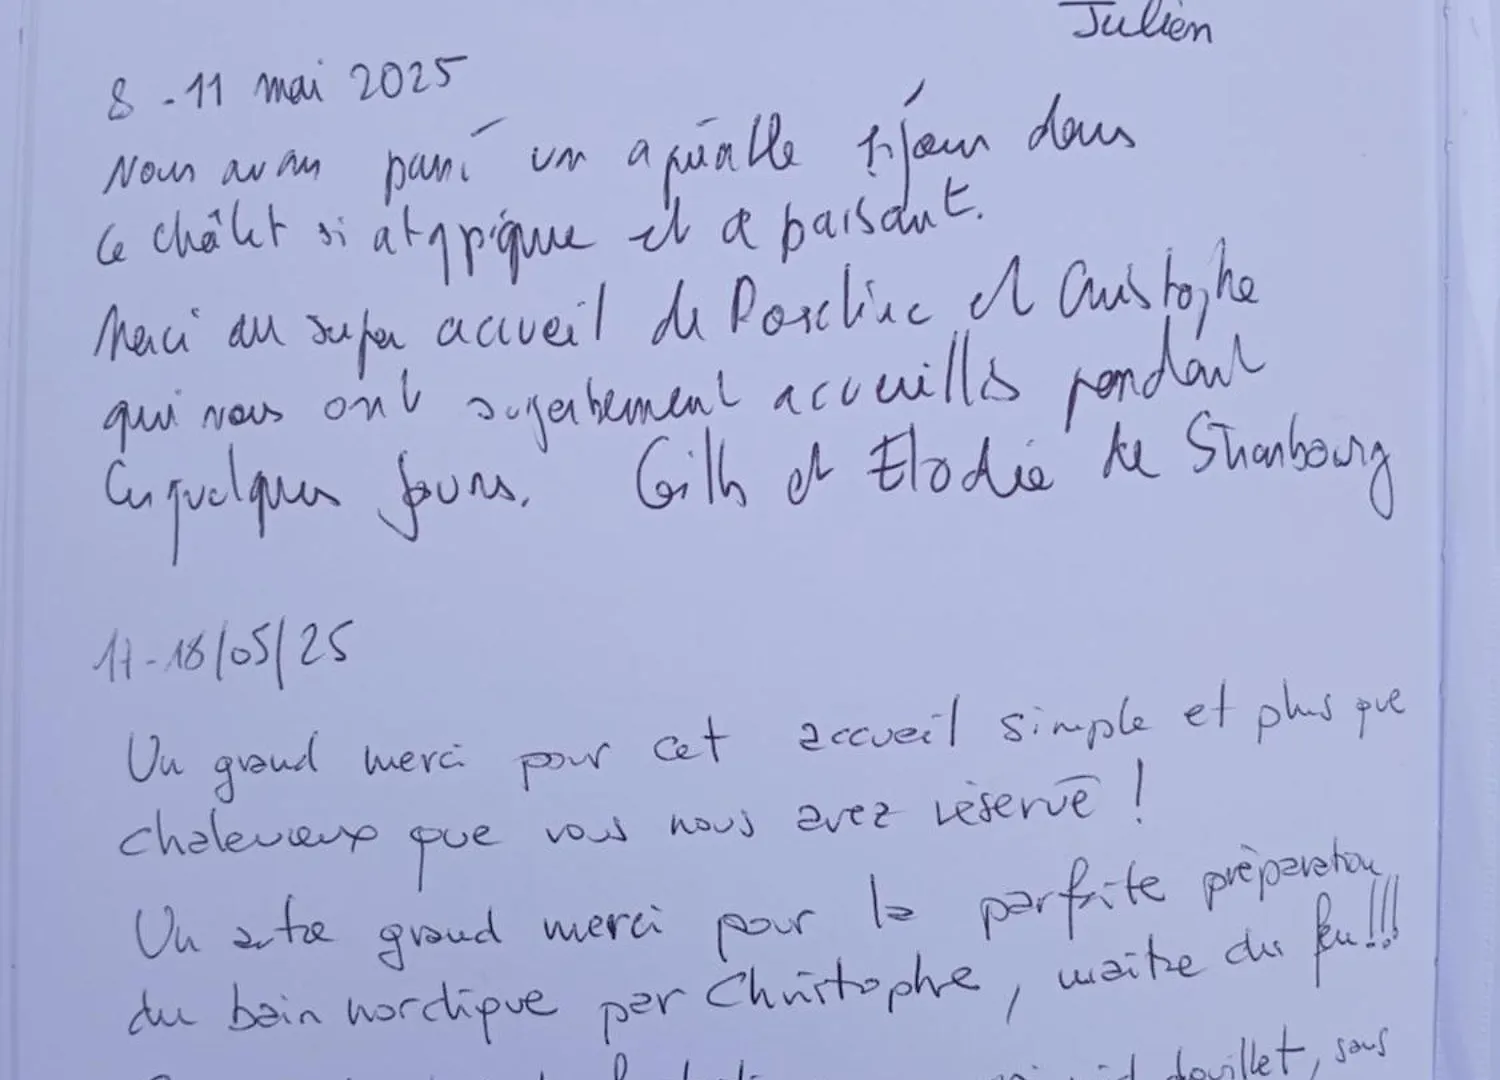 Julien
8 - 11 mai 2025
Nous avons passé un agréable séjour dans
ce châlet si atypique et apaisant.
Merci au super accueil de Roseline et Christophe
qui nous ont superbement accueillis pendant
ces quelques jours. Gilles et Elodie de Strasbourg
17-18/05/25
Un grand merci pour cet accueil simple et plus que
chaleureux que vous nous avez réservé !
Un autre grand merci pour la parfaite préparation
du bain nordique par Christophe, maître du feu !!!
douillet, sans